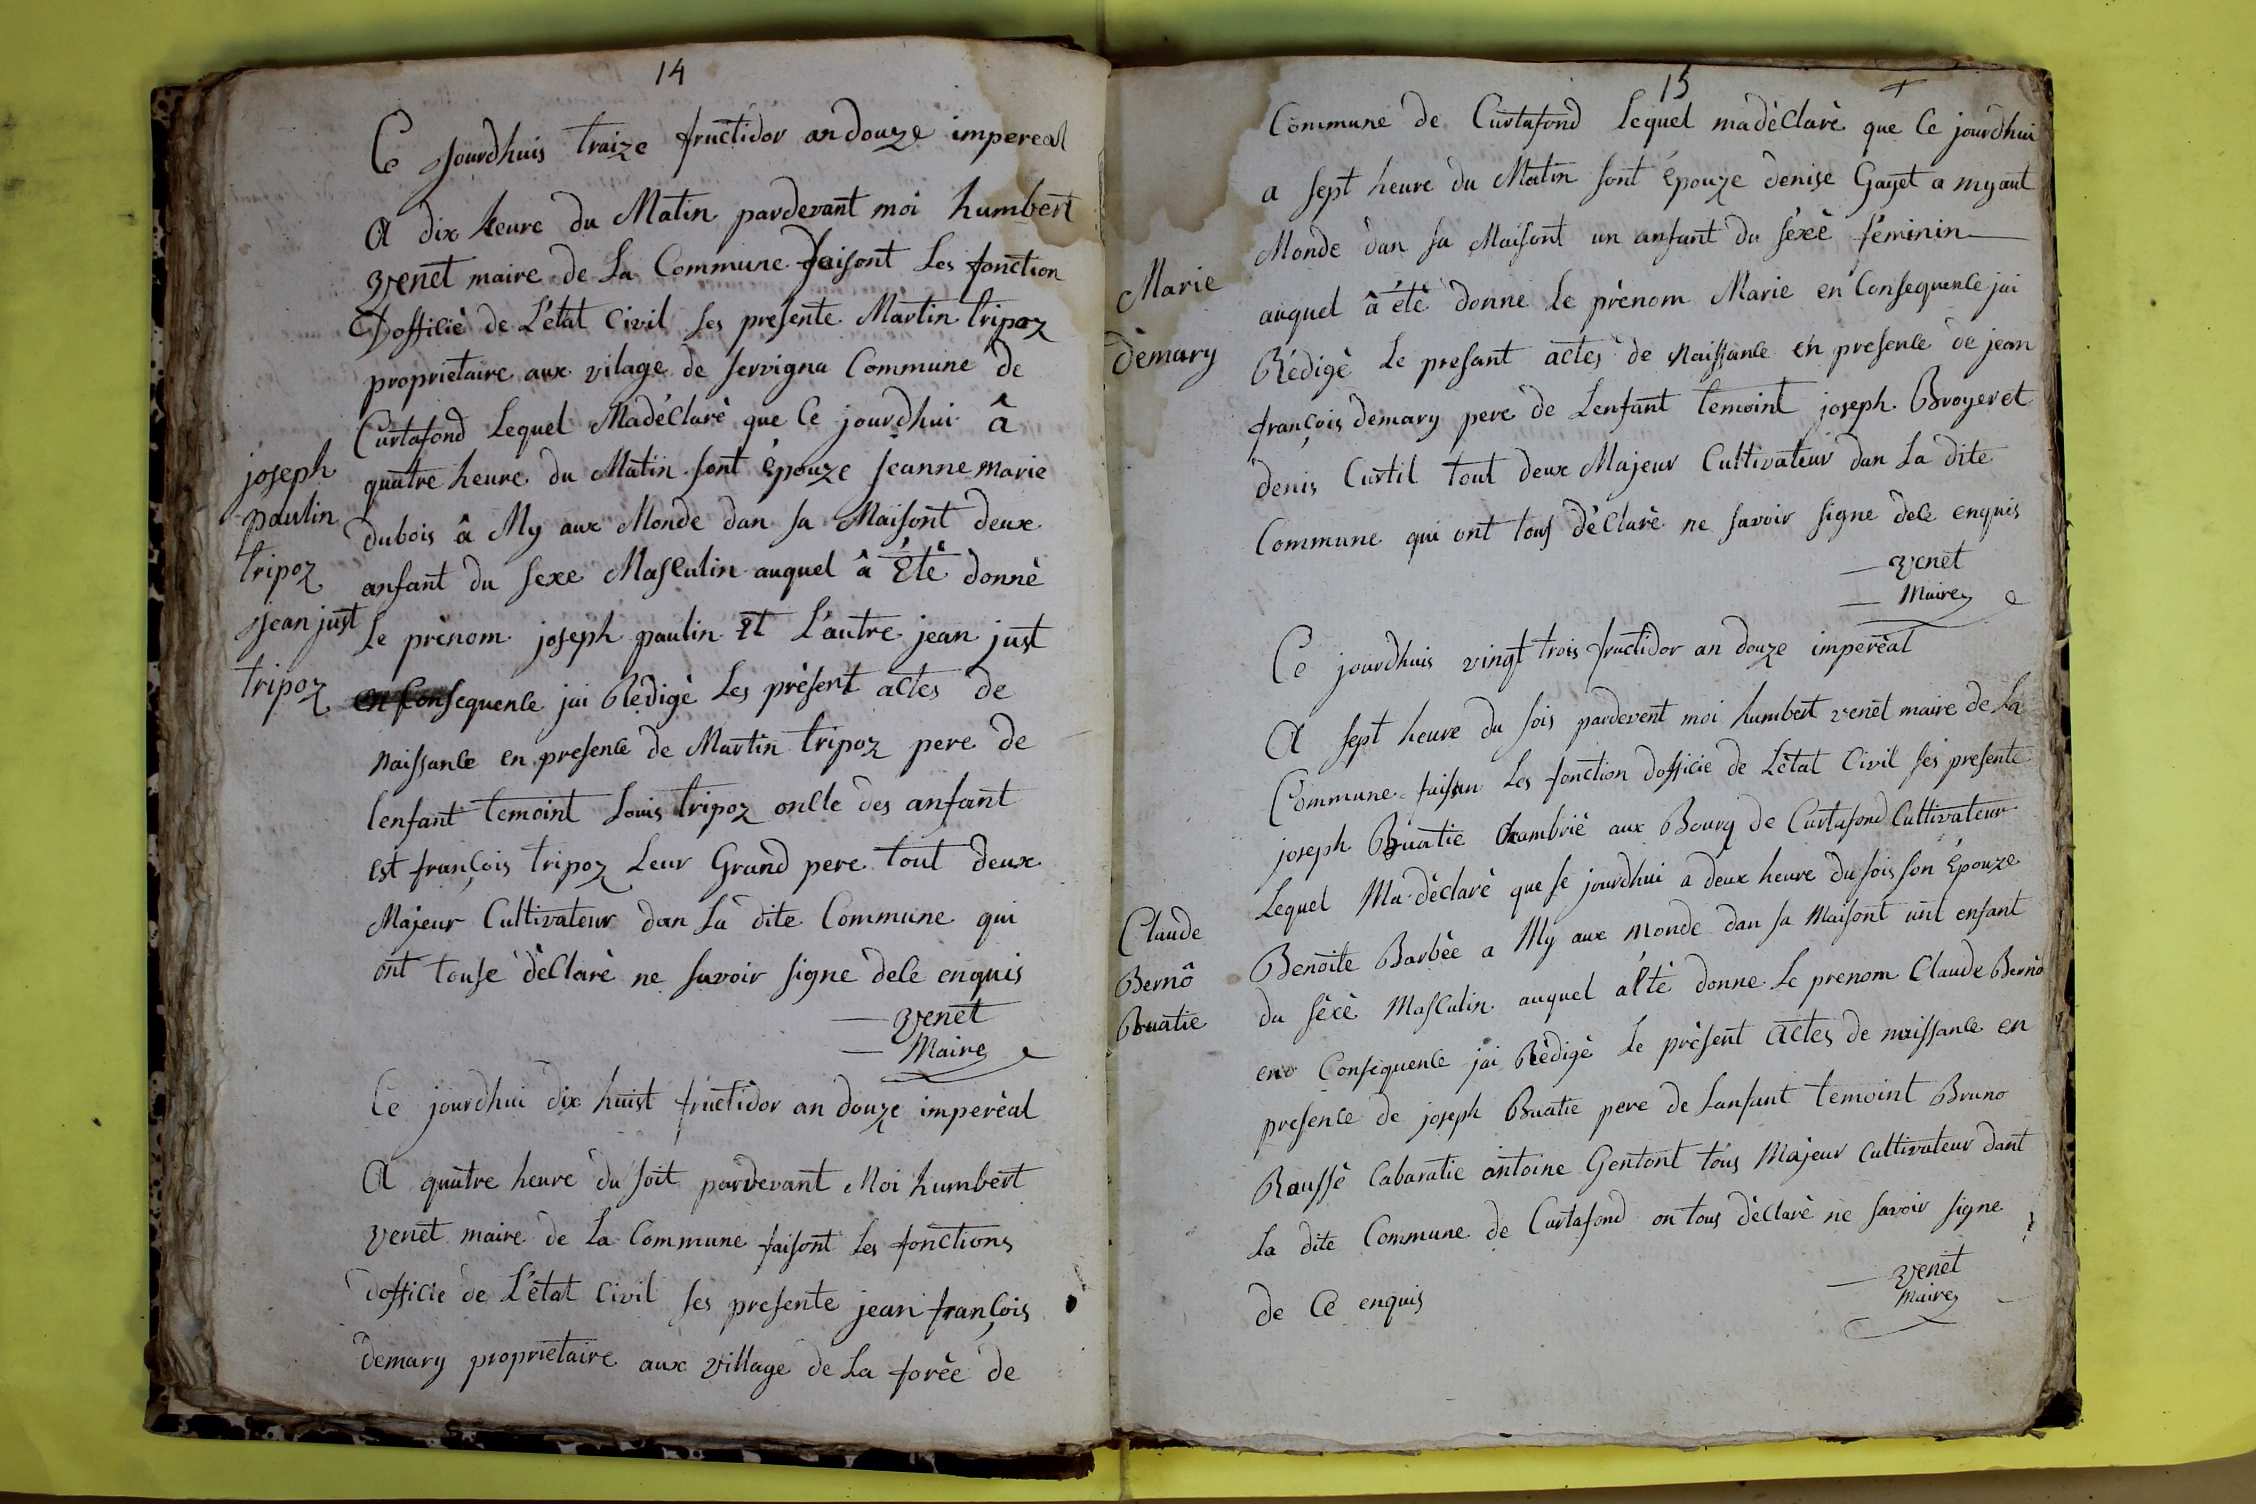 14
Ce jourdhuis traize fructidor an douze impereal
A dix heure du Matin pardevant moi humbert
venet maire de La Commune faisont Les fonction
Dofficiè de L'état Civil ses presente Martin tripoz
proprietaire aux vilage de servigna Commune de
Curtafond Lequel Madéclarè que Ce jourdhui â
quatre heure du Matin sont Épouze Jeanne marie
dubois â My aux Monde dan sa Maisont deux
anfant du sexe Masculin auquel â Étè donnè
Le prènom joseph paulin Et L'autre jean just
en Consequence jai Rédigè Les prèsent actes de
Naissance en presence de Martin tripoz pere de
lenfant temoint Louis tripoz oncle des anfant
est françois tripoz Leur Grand pere tout deux
Majeur Cultivateur dan La dite Commune qui
ont touse dèclarè ne savoir signe dele enquis
venet
Maire
joseph
paulin
tripoz
jean just
tripoz
Ce jourdhui dix huist fructidor an douze imperèal
A quatre heure du soit pardevant Moi humbert
venet maire de La Commune faisont Les fonctions
dofficie de L'état Civil ses presente jean françois
demary proprietaire aux village de La forèe de
15
Commune de Curtafond Lequel madèclarè que Ce jourdhui
a sept heure du Matin sont Épouze denise Gayet a my aut
Monde dan sa Maisont un anfant du sexè féminin
auquel â étè donne Le prènom Marie en Consequence jai
Rédigè Le presant actes de Naissance en presence de jean
françois demary pere de Lenfant temoint joseph Broyer et
denis Curtil tout deux Majeur Cultivateur dan La dite
Commune qui ont tous dèclarè ne savoir signe dele enquis
venet
Maire
Marie
dèmary
Ce jourdhuis vingt trois fructidor an douze imperèal
A sept heure du sois pardevent moi humbert venet maire de La
Commune faisan Les fonction dofficie de Létat Civil ses presente
joseph Buatie Chambriè aux Bourg de Curtafond Cultivateur
Lequel Ma dèclarè que se jourdhui a deux heure du sois son Épouze
Benoite Barbèe a My aux Monde dan sa Maisont unt enfant
du sèxè Masculin auquel a étè donne Le prenom Claude Bernô
en Consequence jai Rèdigè Le prèsent actes de naissance en
presence de joseph Buatie pere de Lanfant temoint Bruno
Raussè Cabaratie antoine Gentont tous Majeur Cultivateur dant
La dite Commune de Curtafond on tous dèclarè ne savoir signe
de Ce enquis
venet
Maire
Claude
Bernô
Buatie